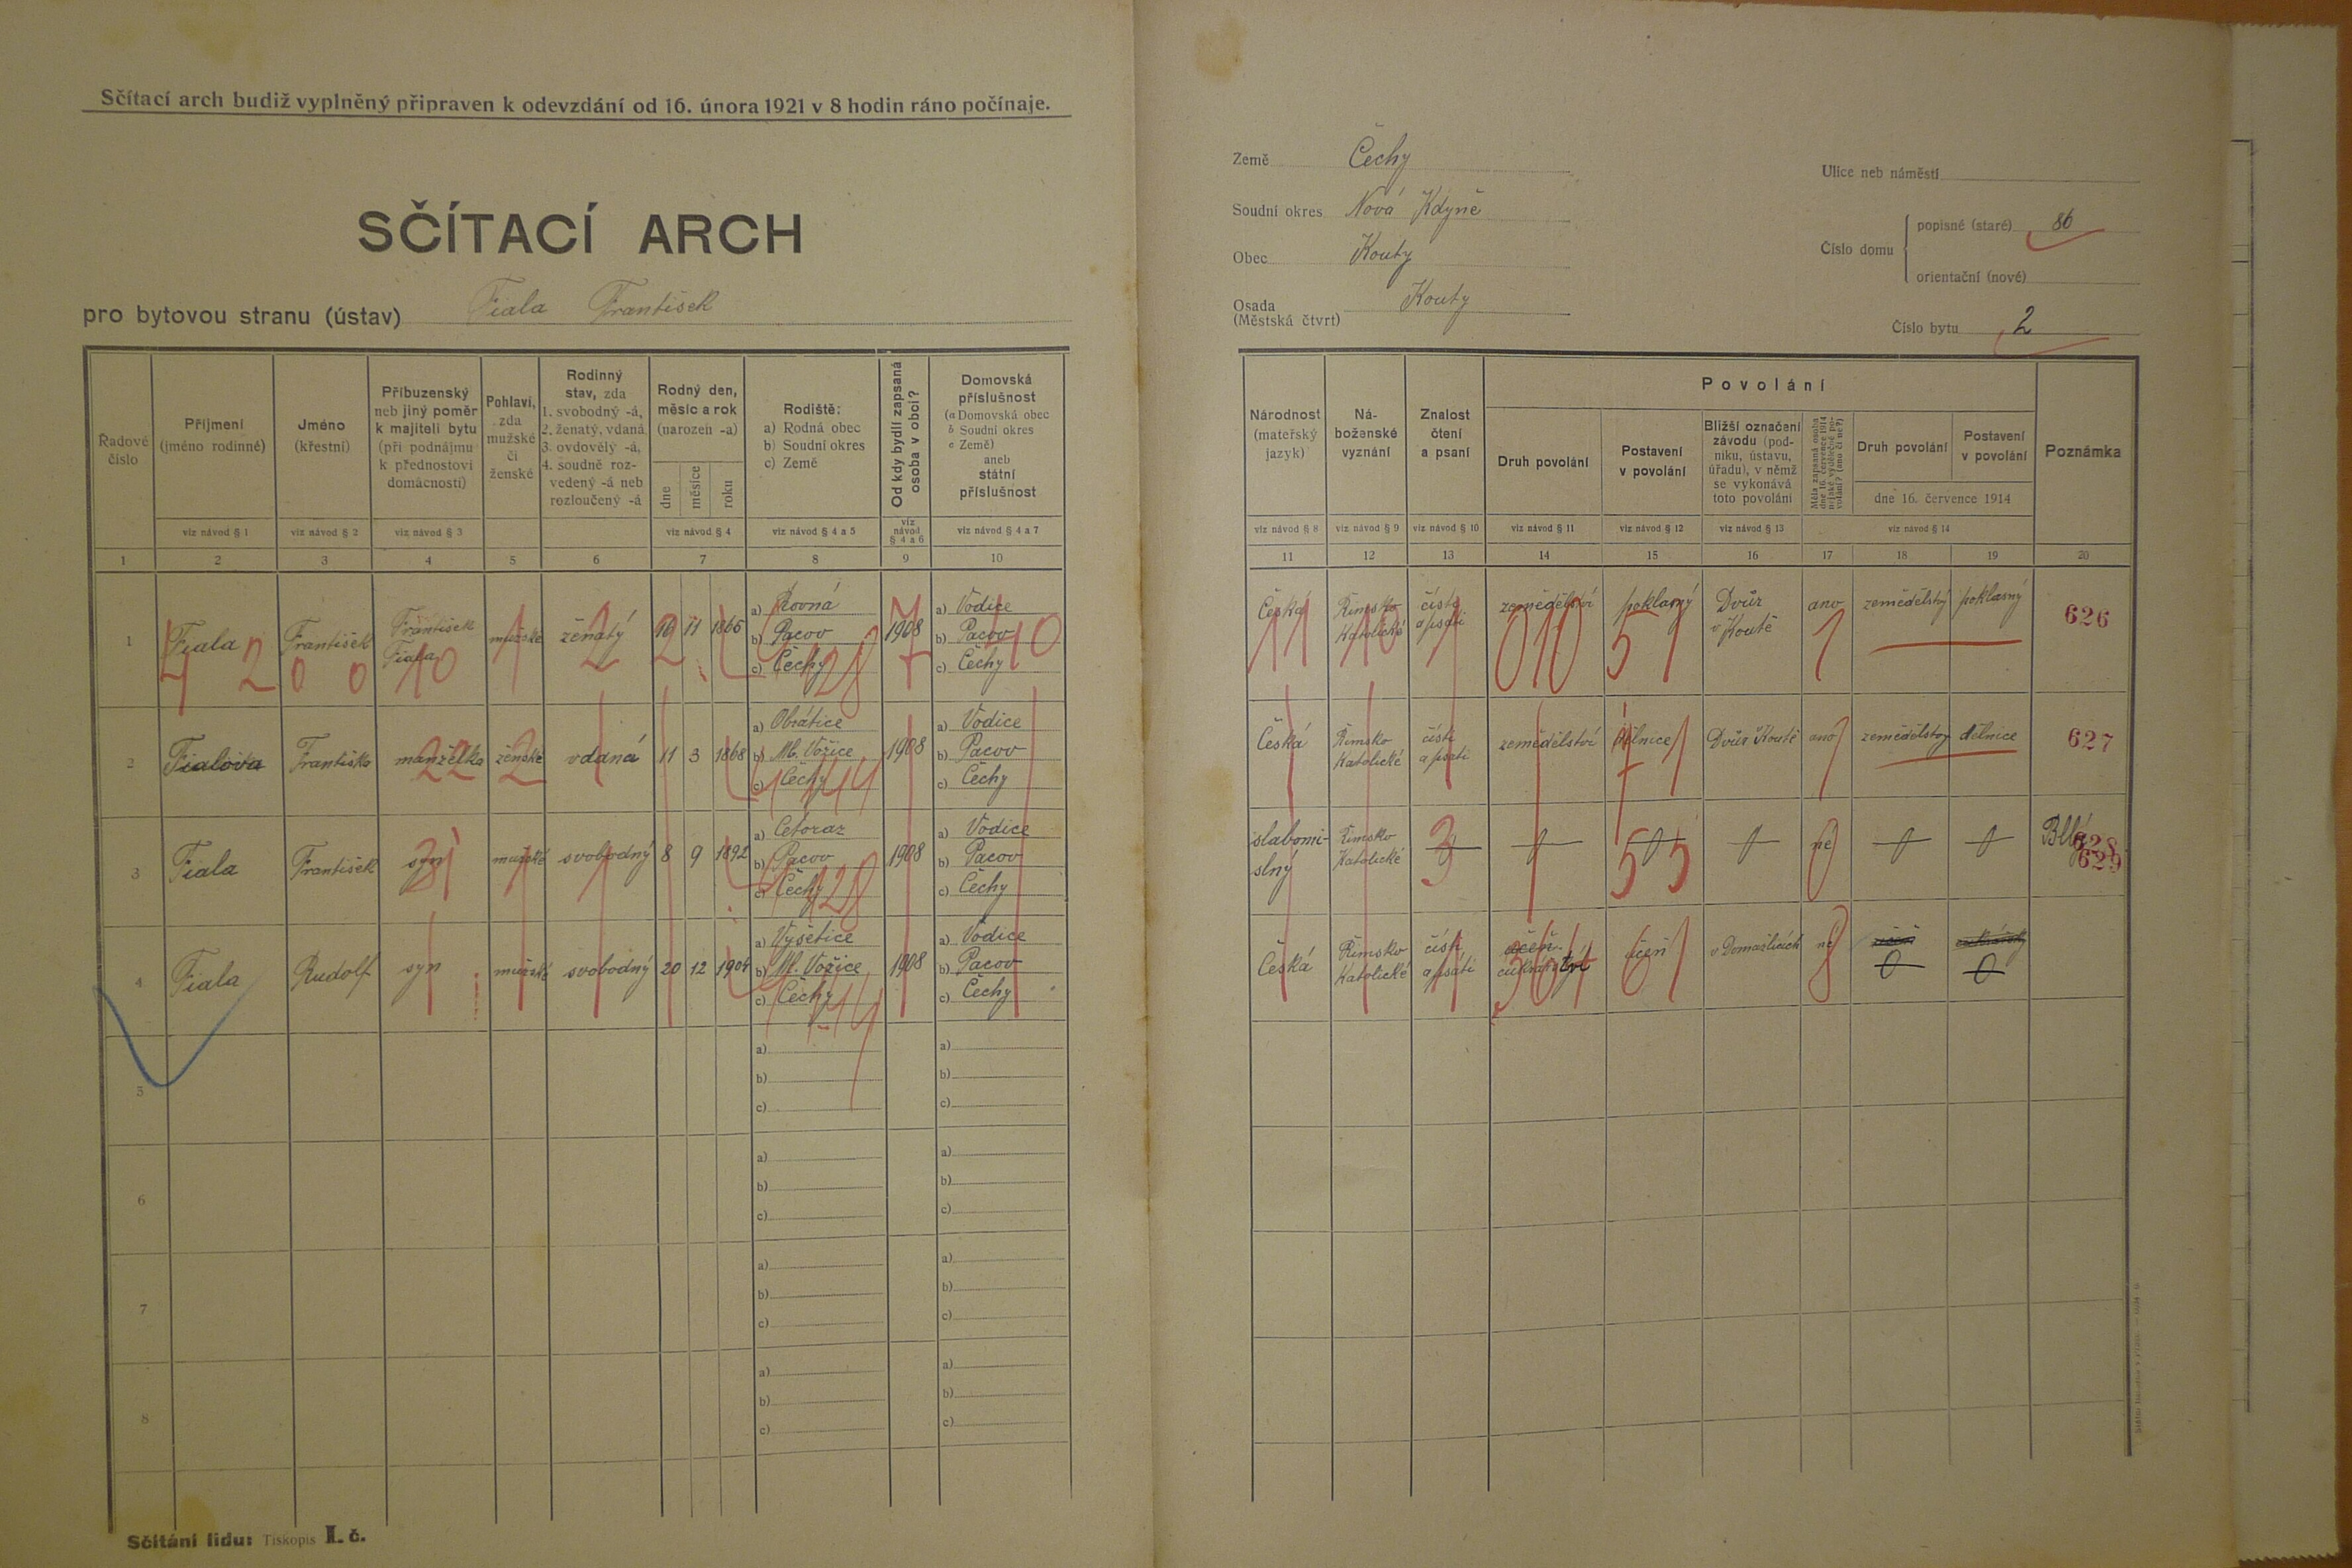 Sčítací arch budiž vyplněný připraven k odevzdání od 16. února 1921 v 8 hodin ráno počínaje.
SČÍTACÍ ARCH
pro bytovou stranu (ústav) Fiala František
Řadové číslo
Příjmení (jméno rodinné)
Jméno (křestní)
Příbuzenský neb jiný poměr k majiteli bytu (při podnájmu k přednostovi domácnosti)
Pohlaví, zda mužské či ženské
Rodinný stav, zda 1. svobodný -á, 2. ženatý, vdaná 3. ovdovělý -á, 4. soudně rozvedený -á neb rozloučený -á
Rodný den, měsíc a rok (narozen -a)
dne měsíce roku
Rodiště: a) Rodná obec b) Soudní okres c) Země
Od kdy bydlí zapsaná osoba v obci?
Domovská příslušnost (a Domovská obec b Soudní okres c Země) aneb státní příslušnost
viz návod § 1 viz návod § 2 viz návod § 3 viz návod § 4 viz návod § 4 a 5 viz návod § 4 a 6 viz návod § 4 a 7
1 2 3 4 5 6 7 8 9 10
1 Fiala František František Fiala mužské ženatý 16 11 1865 a) Rovná b) Pacov c) Čechy 1908 a) Vodice b) Pacov c) Čechy
2 Fialova Františka manželka ženské vdaná 11 3 1868 a) Obrátice b) Ml. Vožice c) Čechy 1908 a) Vodice b) Pacov c) Čechy
3 Fiala František syn mužské svobodný 8 9 1892 a) Cetoraz b) Pacov c) Čechy 1908 a) Vodice b) Pacov c) Čechy
4 Fiala Rudolf syn mužské svobodný 20 12 1904 a) Vyšetice b) Ml. Vožice c) Čechy 1908 a) Vodice b) Pacov c) Čechy
5 a) b) c) a) b) c)
6 a) b) c) a) b) c)
7 a) b) c) a) b) c)
8 a) b) c) a) b) c)
Sčítání lidu: Tiskopis I. č.
Země Čechy
Soudní okres Nová Kdyně
Obec Kouty
Osada (Městská čtvrť) Kouty
Ulice neb náměstí
Číslo domu
popisné (staré) 86
orientační (nové)
Číslo bytu 2
Národnost (mateřský jazyk)
Náboženské vyznání
Znalost čtení a psaní
Povolání
Druh povolání
Postavení v povolání
Bližší označení závodu (podniku, ústavu, úřadu), v němž se vykonává toto povolání
Měla zapsaná osoba dne 16. července 1914 nějaké výdělečné povolání? (ano či ne?)
Druh povolání
Postavení v povolání
dne 16. července 1914
Poznámka
viz návod § 8 viz návod § 9 viz návod § 10 viz návod § 11 viz návod § 12 viz návod § 13 viz návod § 14
11 12 13 14 15 16 17 18 19 20
Česká Římsko Katolické čísti a psati zemědělství poklasný Dvůr v Koutě ano zemědělstvy poklasný 626
Česká Římsko Katolické čísti a psati zemědělství dělnice Dvůr Koutě ano zemědělstvy dělnice 627
slabomislný Římsko Katolické ne 628 629
Česká Římsko Katolické čísti a psáti učeň učeň v Domažlicích ne 0 0